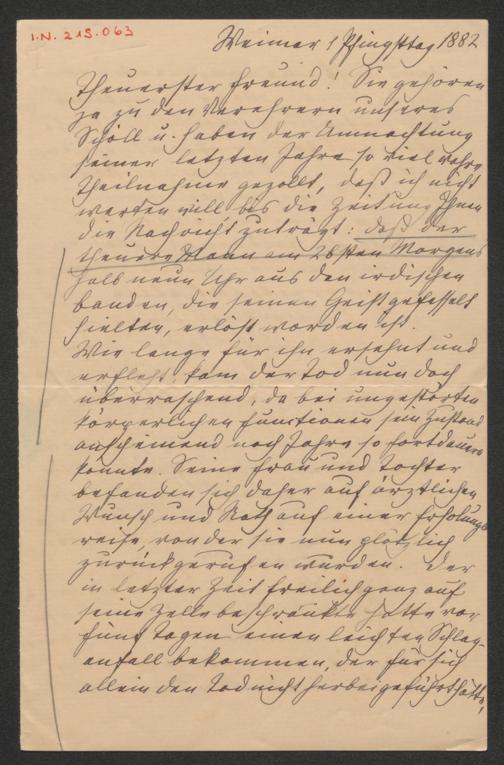 I.N. 215.063
Weimar 1 Pfingsttag 1882
Theuerster Freund! Sie gehören
ja zu den Verehrern unseres
Schöll u. haben der Umnachtung
seiner letzten Jahre so viel wahre
Theilnahme gezollt, daß ich nicht
warten will bis die Zeitung Ihnen
die Nachricht zuträgt: daß der
theure Mann am 26sten Morgens
halb neun Uhr aus den irdischen
Banden, die seinen Geist gefesselt
hielten, erlöst worden ist.
Wie lange für ihn ersehnt und
erfleht, kam der Tod nun doch
überraschend, da bei ungestörten
körperlichen Functionen sein Zustand
anscheinend noch Jahre so fortdauern
konnte. Seine Frau und Tochter
befanden sich daher auf ärztlichen
Wunsch und Rath auf einer Erholungs
reise, von der sie nun plötzlich
zurückgerufen wurden. Der
in letzter Zeit freilich ganz auf
seine Zelle beschränkte hatte vor
fünf Tagen einen leichten Schlag-
anfall bekommen, der für sich
allein den Tod nicht herbeigeführt hätte,